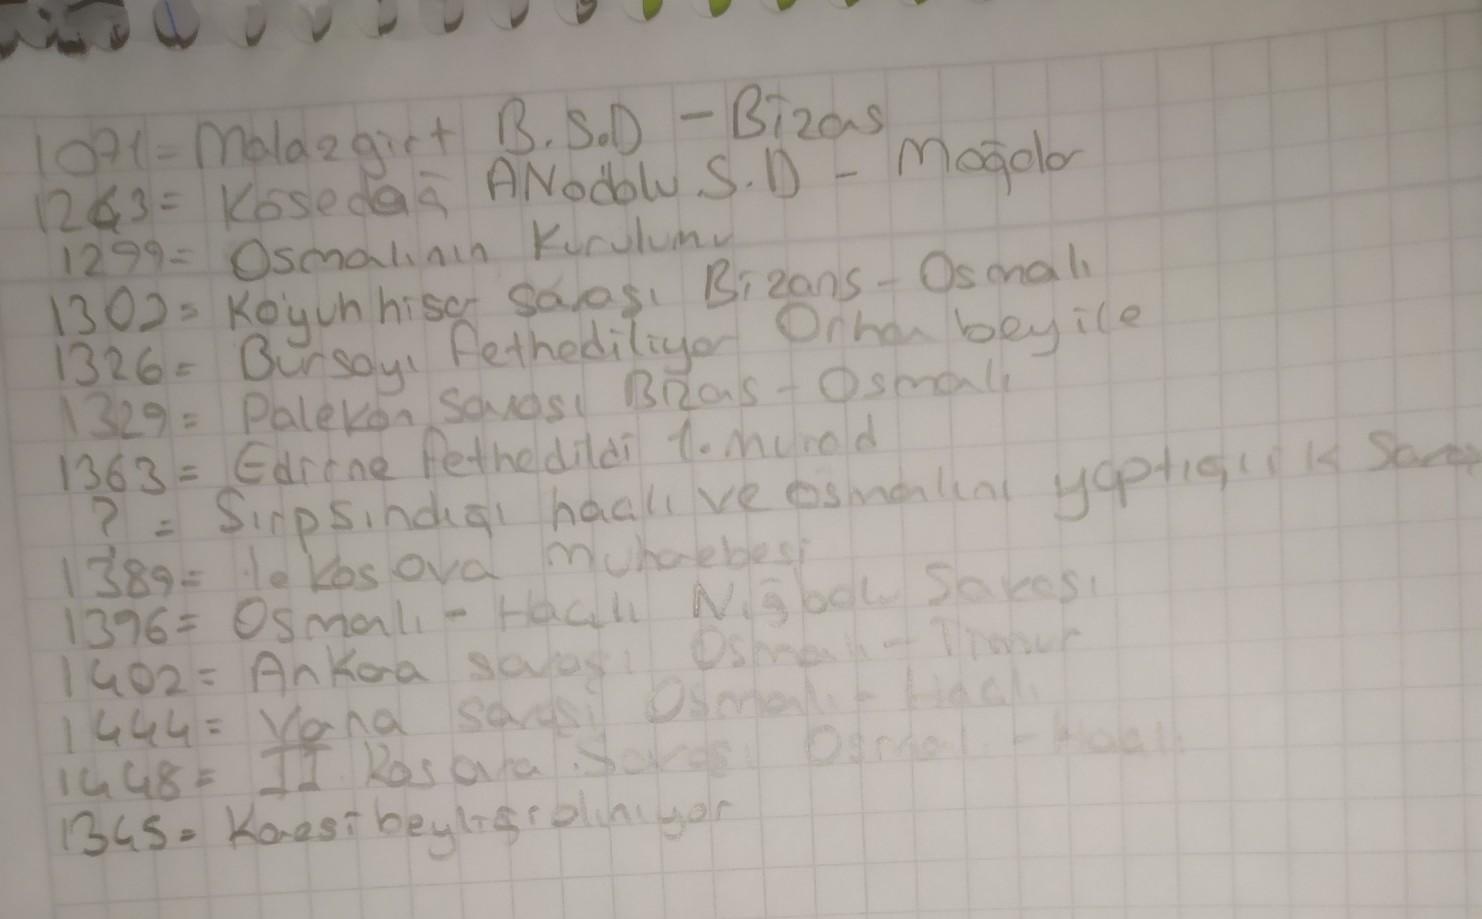 1071= Malazgirt B.S.D - Bizas
1243= Kösedağ ANadolu S.D - Moğolar
1299= Osmalının Kurulumu
1302= Koyunhisar Savaşı Bizans - Osmalı
1326= Bursayı fethediliyor Orhan bey ile
1329= Palekon Savaşı Bizas - Osmalı
1363= Edirne fethedildi 1. Murad
? = Sırpsındığı haçlı ve osmanlını yaptığı ilk Savaş
1389= 1. Kosova muharebesi
1396= Osmalı - Haçlı Niğbolu Savaşı
1402= Ankara savaşı Osmalı - Timur
1444= Varna savaşı Osmalı - Haçlı
1448= II. Kosova Savaşı Osmalı - Haçlı
1345= Karesi beyliği alınıyor